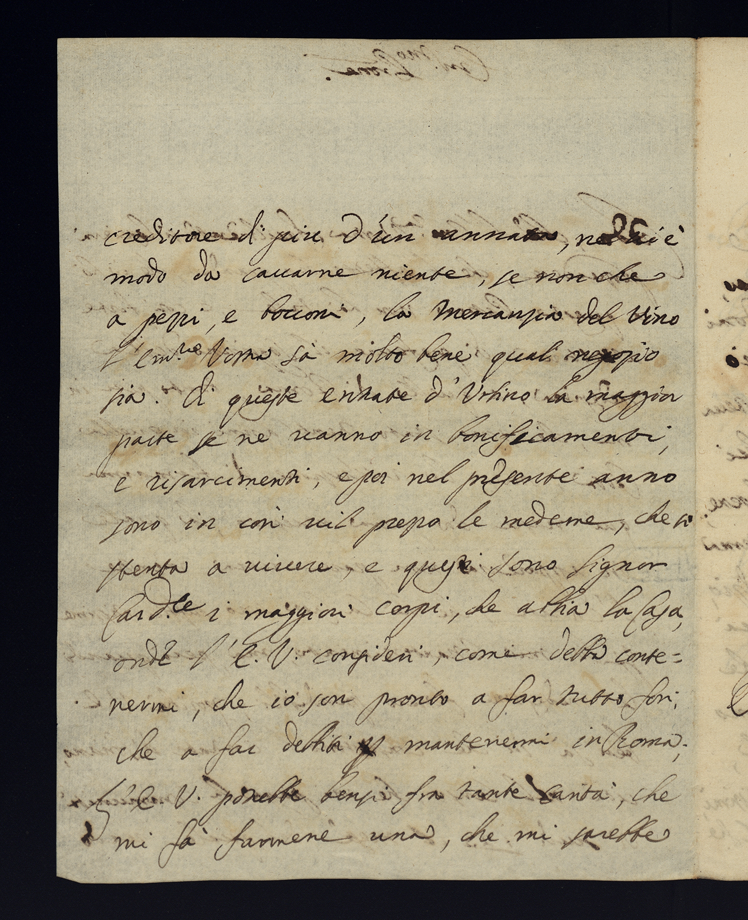 creditore di piu d'un annata, ne vi è
modo da cauarne niente, se non che
a pezzi, e bocconi, la Mercanzia del Vino
l'Em.za Vrã sà molto bene qual negozio
sia. Di queste entrate d'Urbino la maggior
parte se ne vanno in bonificamenti,
e risarcimenti, e poi nel presente anno
sono in così vil prezzo le medeme, che si
stenta a viuere, e questi sono Signor
Card.le i maggiori corpi, che abbia la Casa,
onde l'E. V. consideri, come debba conte=
nermi, che io son pronto a far tutto fori,
che a far debiti p mantenermi in Roma;
L'E. V. potrebbe bensi fra tante carità, che
mi fà farmene una, che mi sarebbe